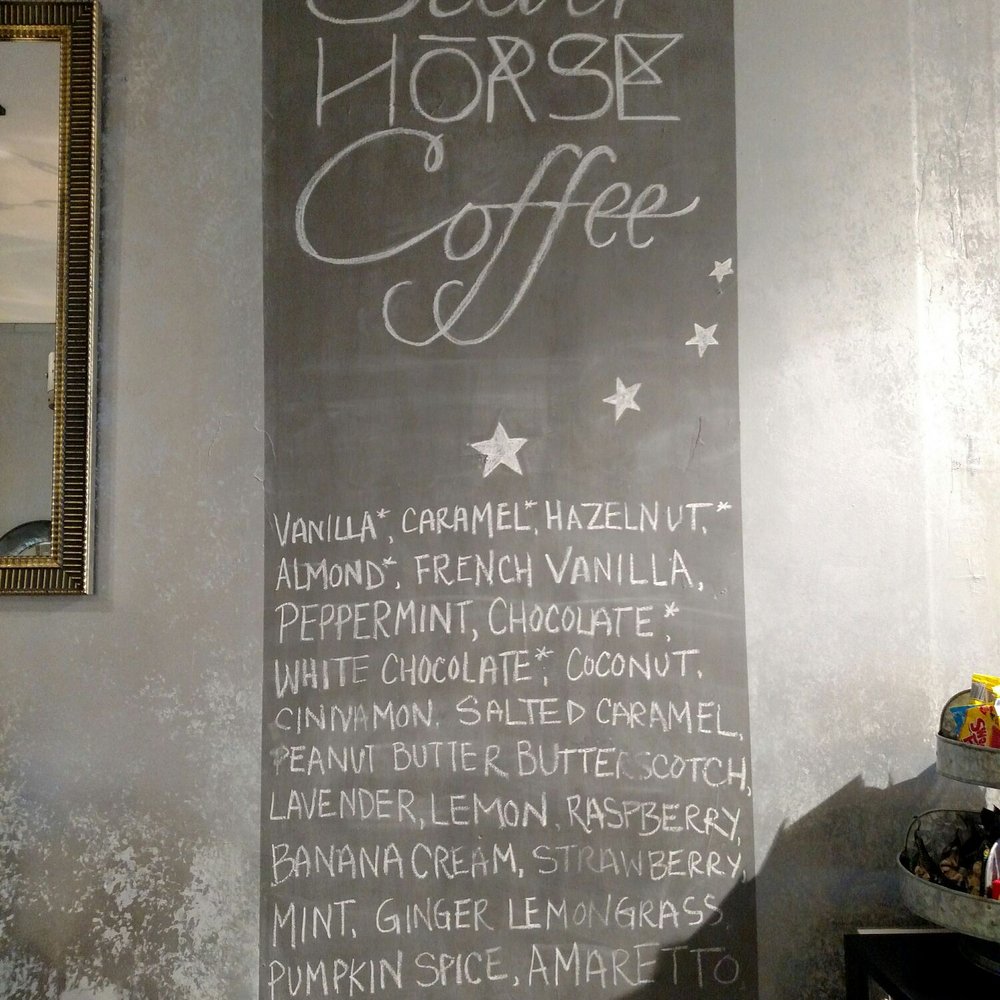 Silver
HŌRSE
Coffee
VANILLA*, CARAMEL*, HAZELNUT,*
ALMOND*, FRENCH VANILLA,
PEPPERMINT, CHOCOLATE*,
WHITE CHOCOLATE*, COCONUT,
CINNAMON, SALTED CARAMEL,
PEANUT BUTTER BUTTERSCOTCH,
LAVENDER, LEMON, RASPBERRY,
BANANA CREAM, STRAWBERRY,
MINT, GINGER LEMONGRASS
PUMPKIN SPICE, AMARETTO